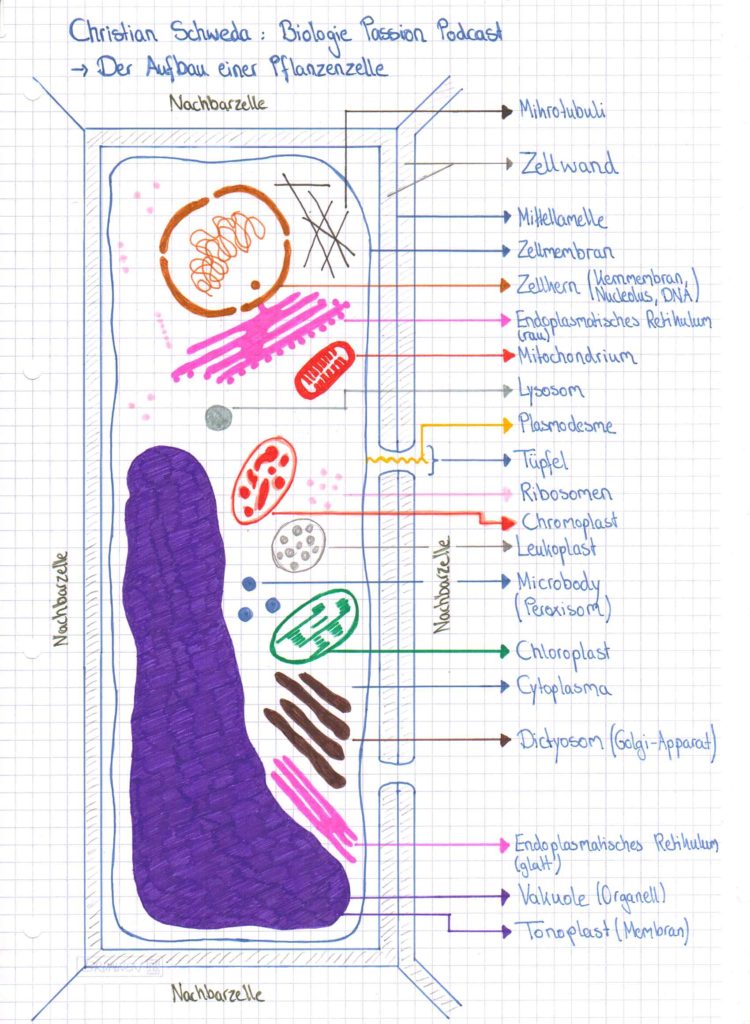 Christian Schweda : Biologie Passion Podcast
→ Der Aufbau einer Pflanzenzelle
Nachbarzelle
Mikrotubuli
Zellwand
Mittellamelle
Zellmembran
Zellkern (Kernmembran,
Nucleolus, DNA)
Endoplasmatisches Retikulum
(rau)
Mitochondrium
Lysosom
Plasmodesme
Tüpfel
Ribosomen
Chromoplast
Leukoplast
Nachbarzelle
Nachbarzelle
Microbody
(Peroxisom)
Chloroplast
Cytoplasma
Dictyosom (Golgi-Apparat)
Endoplasmatisches Retikulum
(glatt)
Vakuole (Organell)
Tonoplast (Membran)
Nachbarzelle